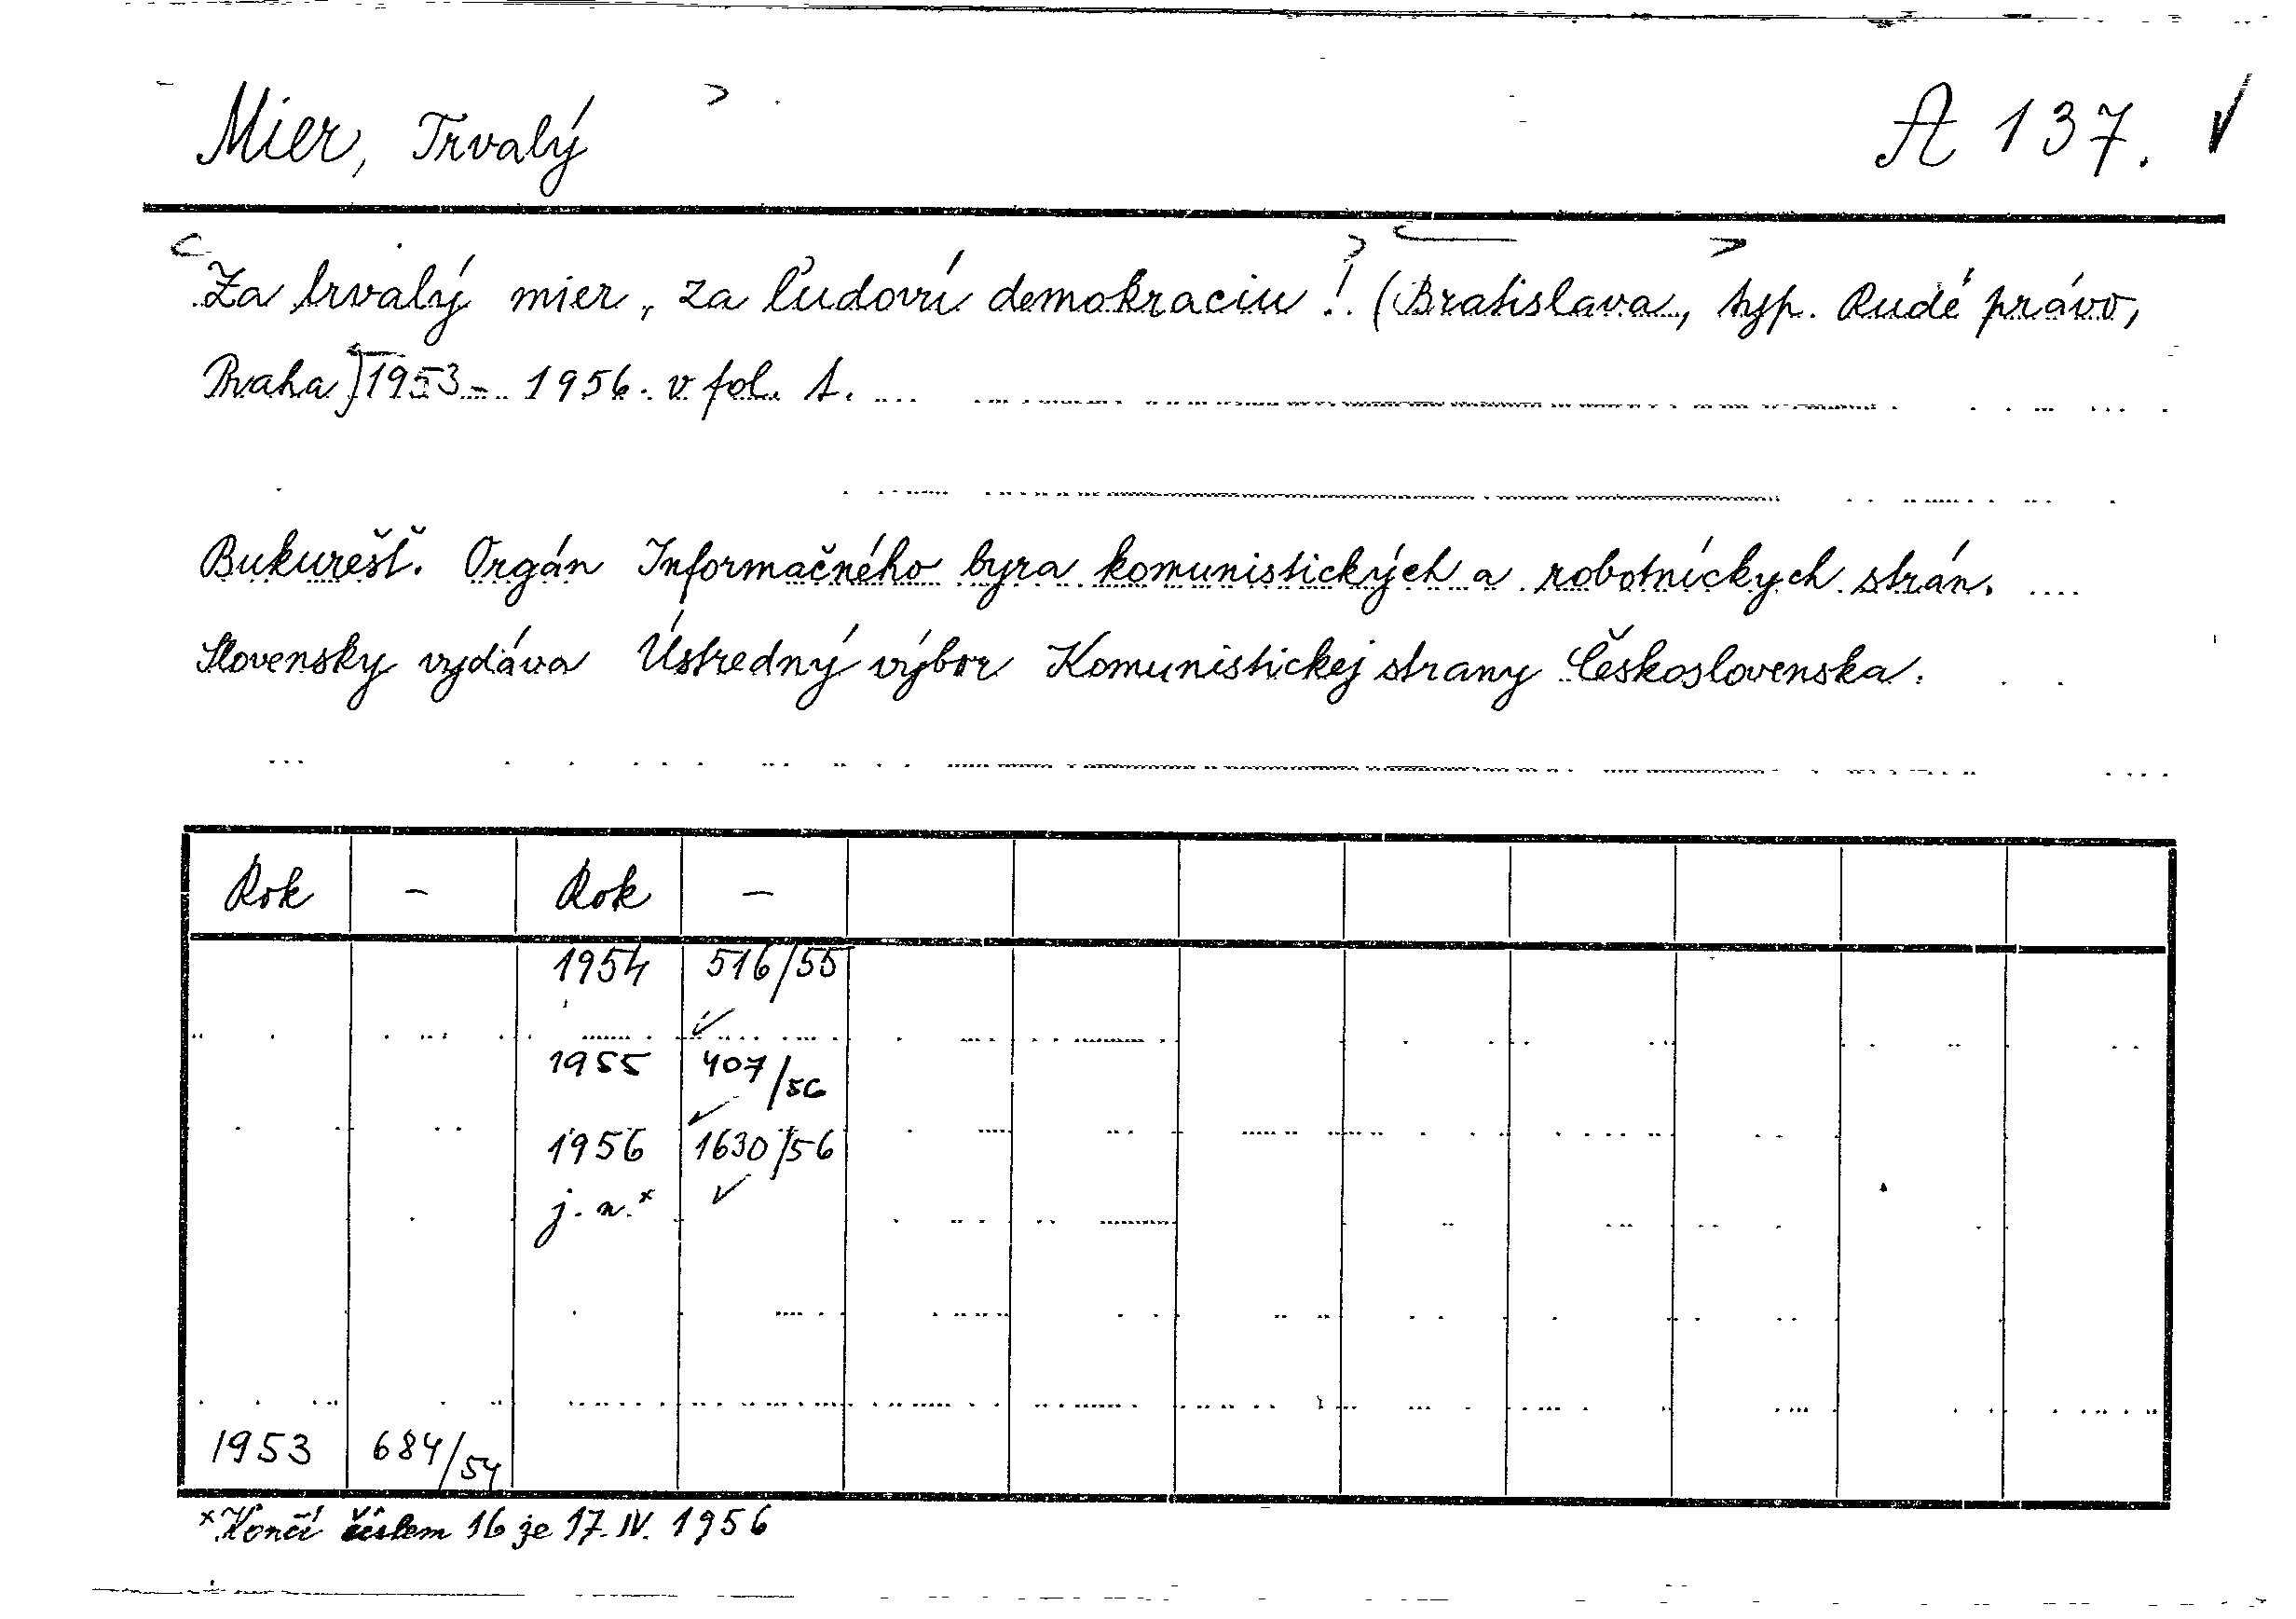 Mier, Trvalý A 137. ✓
Za trvalý mier, za ľudovú demokraciu! (Bratislava, typ. Rudé právo,
Praha) 1953 - 1956. v fol. t.
Bukurešť. Orgán Informačného byra komunistických a robotníckych strán.
Slovensky vydáva Ústredný výbor Komunistickej strany Československa.
Rok – Rok –
1954 516/55
✓
1955 407/56
✓
1956 1630/56
j. n.* ✓
1953 684/54
*Končí číslem 16 ze 17. IV. 1956